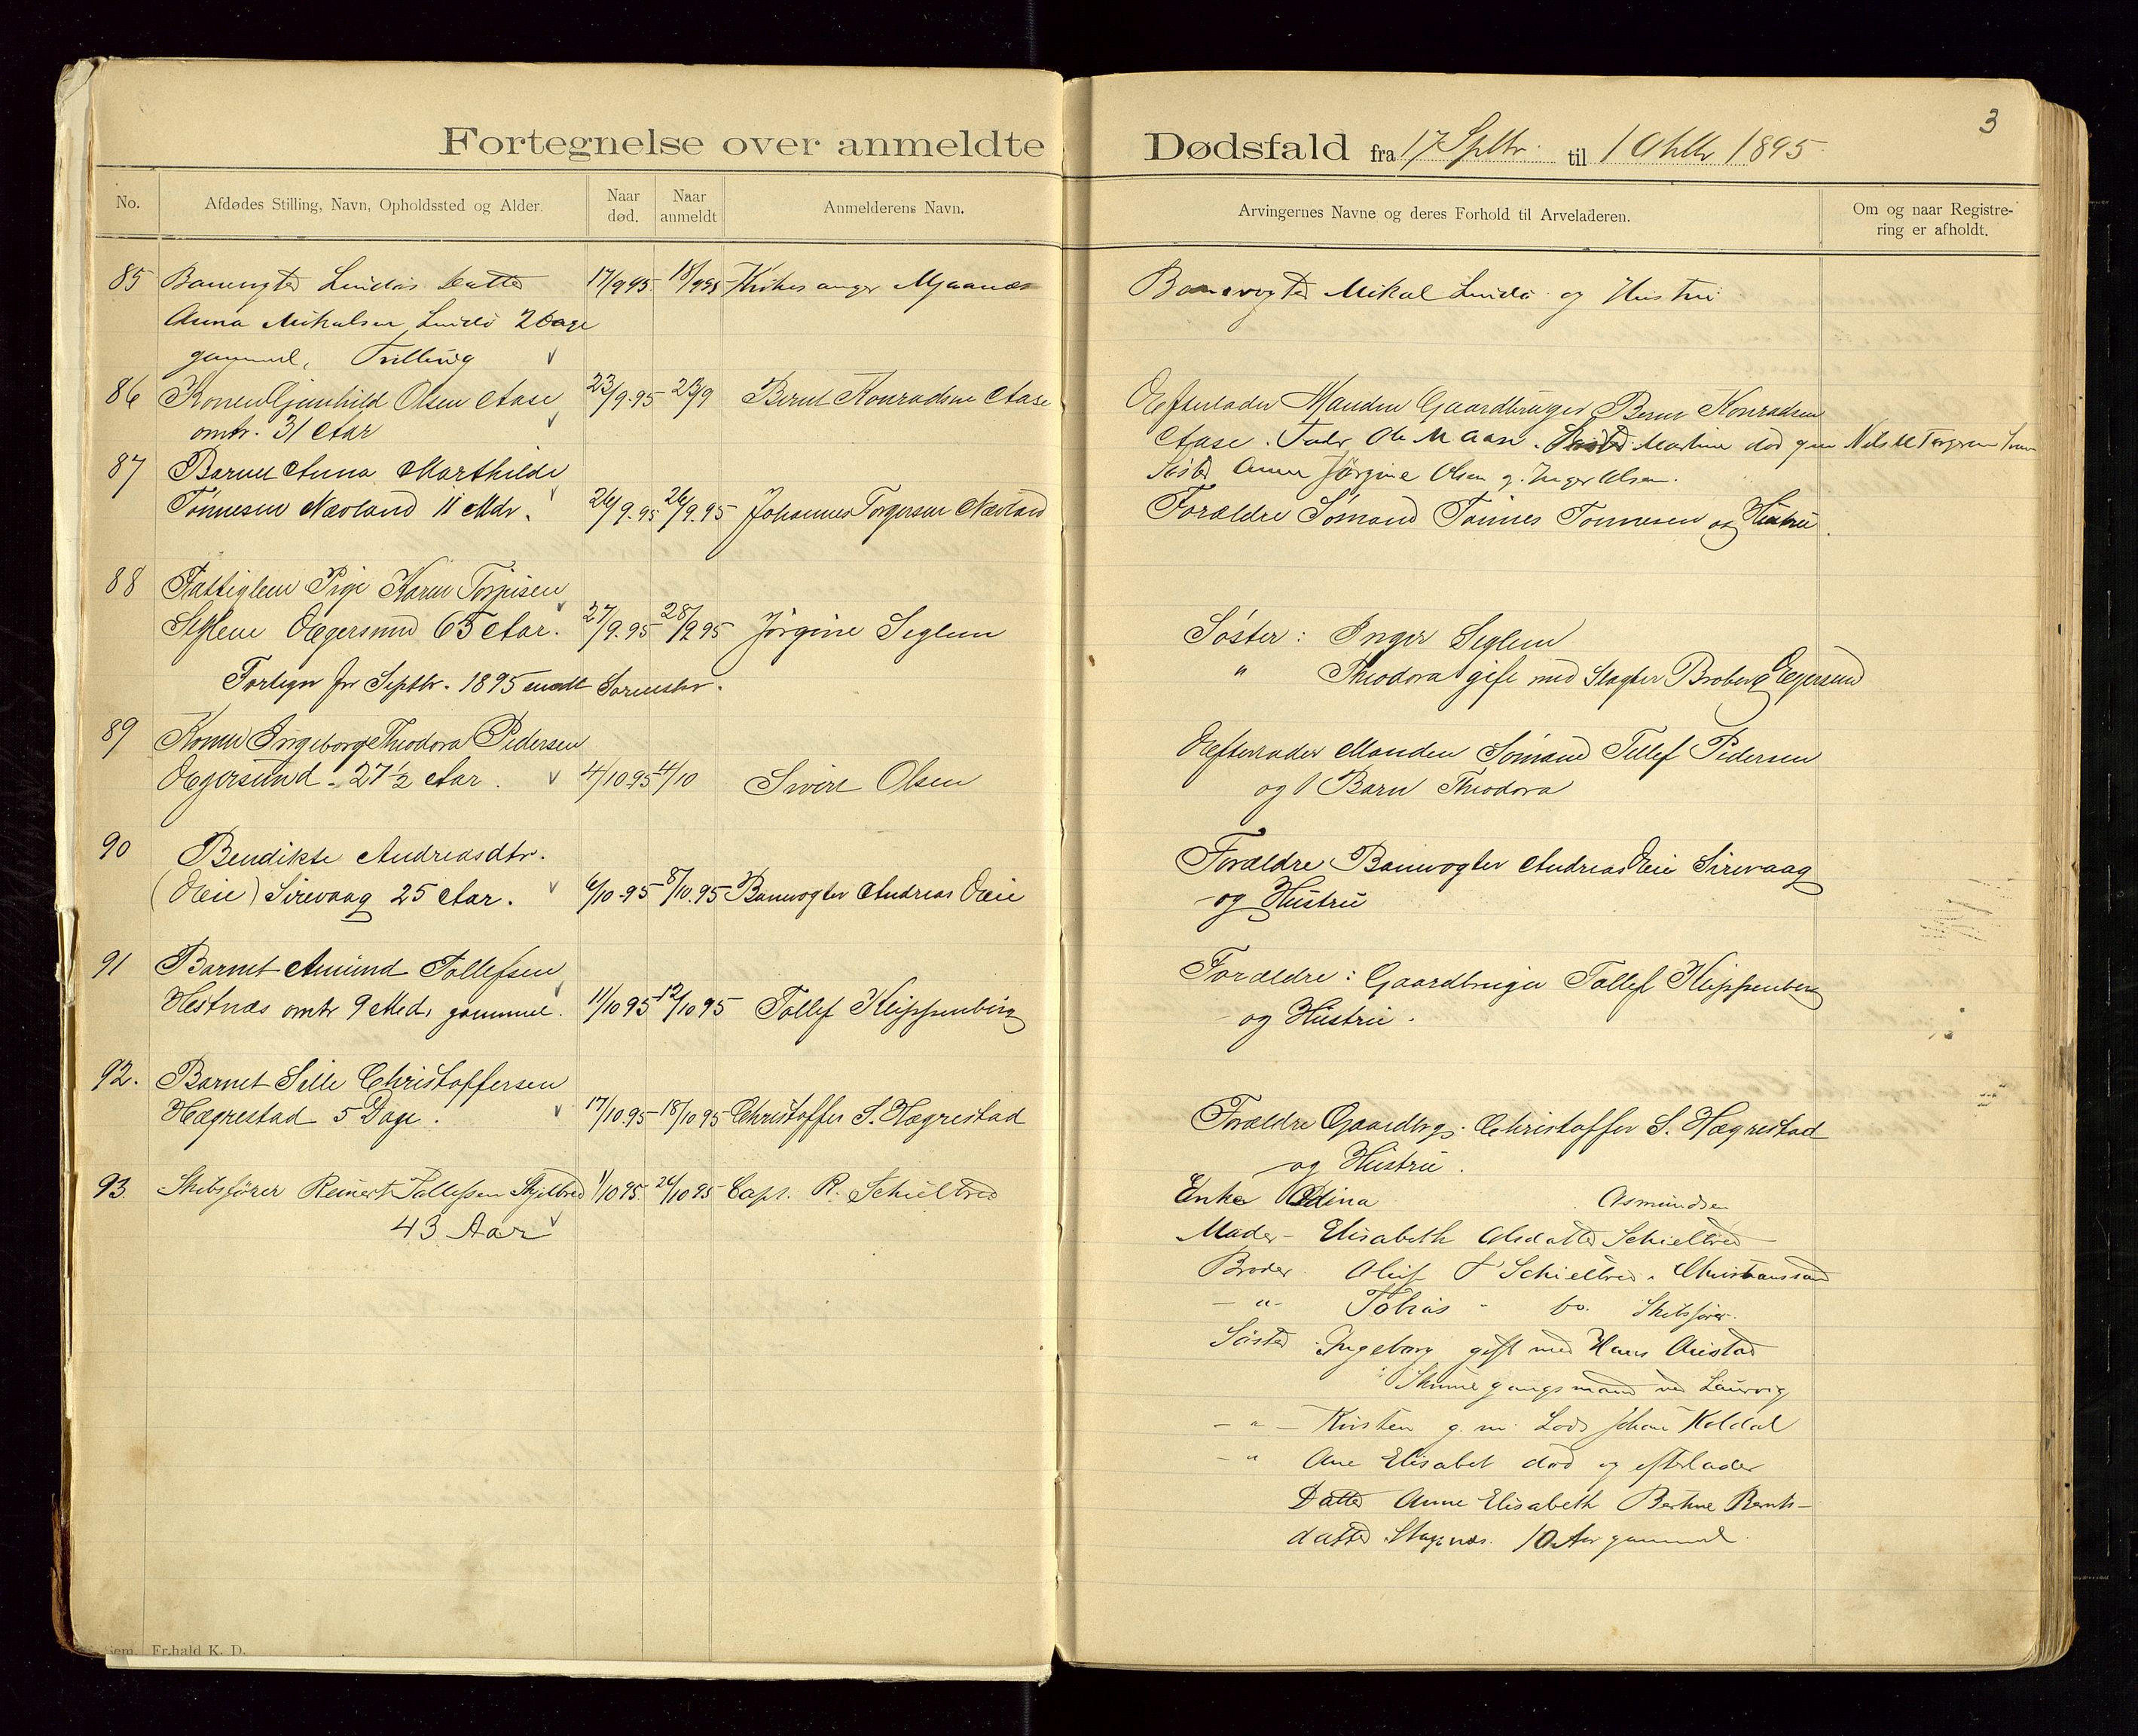 3
Fortegnelse over anmeldte Dødsfald fra 17 Septbr. til 1 Oktbr 1895
No.
Afdødes Stilling, Navn, Opholdssted og Alder.
Naar død.
Naar anmeldt
Anmelderens Navn.
Arvingernes Navne og deres Forhold til Arveladeren.
Om og naar Registre-
ring er afholdt.
85 Banevogter Lindøs Datter 17/9 95 18/9 95 Kirkesanger Maanæs
Banevogter Mikal Lindø og Hustru
Anna Mikalsen Lindø 2 Dage
gammel, Tvilling
86 Konen Gunhild Olsen Aase 23/9.95 23/9 Bernt Konradsen Aase
omtr. 31 Aar
Efterlader Manden Gaardbruger Bernt Konradsen
Aase. Fader Ole M Aase. Martine død gm Nils M Torgersen
Søster Anne Jørgine Olsen og Inger Olsen.
87 Barnet Anna Marthilde
Tønnesen Nævland 11 Mdr. 26/9.95 26/9.95 Johannes Torgersen Nævland
Forældre Sømand Tønnes Tønnesen og Hustru.
88 Fattiglem Pige Karen
Seglem Egersund 65 Aar. 27/9.95 28/9 95 Jørgine Seglem
Søster: Inger Seglem
" Theodora gift med Slagter Broberg Egersund
Fortegn for Septbr. 1895 sendt Sorenskr.
89 Konen Ingeborg Theodora Pedersen
Egersund 27½ Aar. 4/10.95 4/10 Sivert Olsen
Efterlader Manden Sømand Tollef Pedersen
og 1 Barn Theodora
90 Bendikte Andreasdtr.
(Eie) Sirevaag 25 Aar. 6/10.95 8/10.95 Banevogter Andreas Eie
Forældre Banevogter Andreas Eie Sirevaag
og Hustru
91 Barnet Amund Tollefsen
Hestnæs omtr 9 Mdr. gammel. 11/10 95 12/10 95 Tollef Klippenberg
Forældre: Gaardbruger Tollef Klippenberg
og Hustru.
92. Barnet Sille Christoffersen
Hægrestad 5 Dage. 17/10.95 18/10 95 Christoffer S. Hægrestad
Forældre Gaardbrg. Christoffer S. Hægrestad
og Hustru.
93. Skibsfører Reinert Tollefsen Skjelbred 1/10 95. 26/10 95 Capt. R. Schielbred
43 Aar
Enke Edina Asmundsen
Moder - Elisabeth Olsdatter Schielbred
Broder Oluf T Schielbred. Christianssand
- " - Tobias " bo. Skibsfører.
Søster Ingeborg gift med Hans Austad
Skinnegangsmand ved Laurvig
- " - Kirsten g. m. Lods Johan Koldal
- " Ane Elisabet død og efterlader
Datter Anne Elisabeth Bertine Bernts-
datter Stapnæs. 10 Aar gammel
Fr.hald K. D.